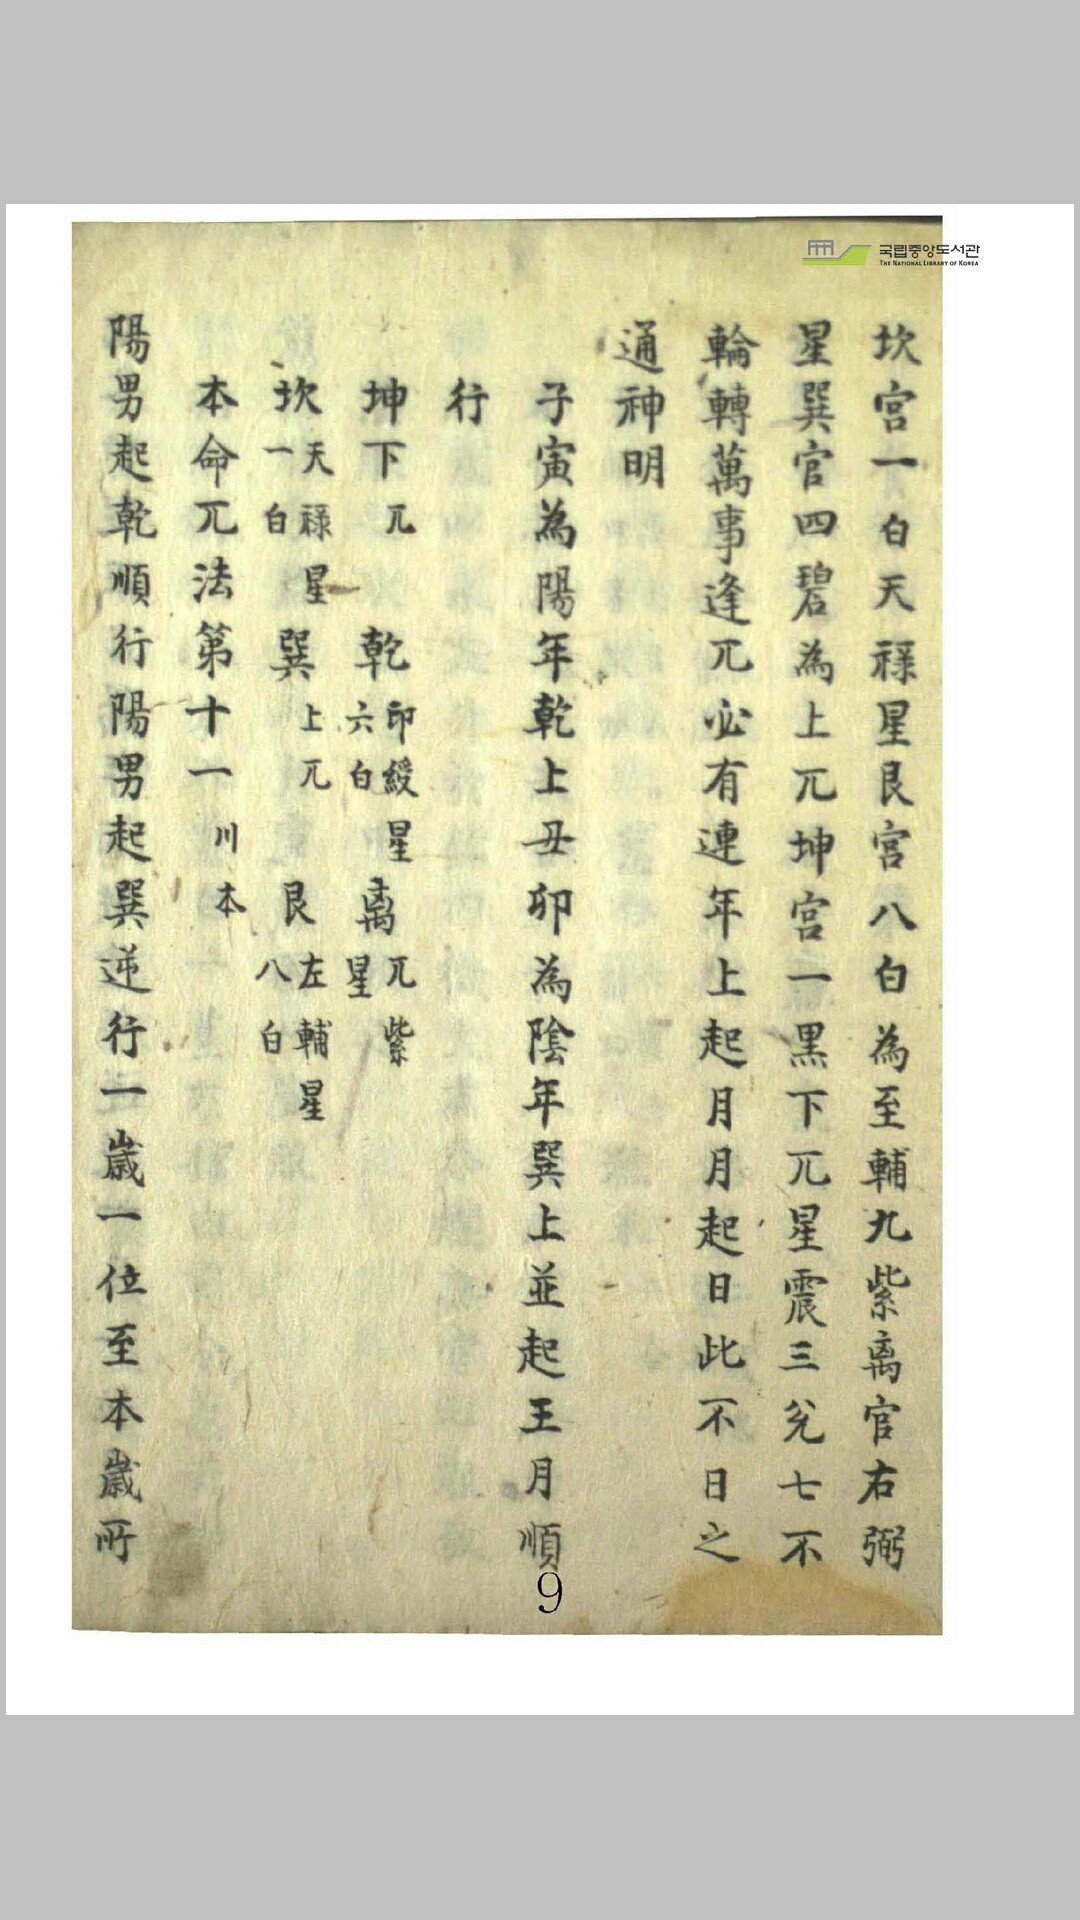 국립중앙도서관
THE NATIONAL LIBRARY OF KOREA
坎宮一白天祿星艮宮八白為至輔九紫离官右弼
星巽官四碧為上兀坤宮一黑下兀星震三兊七不
輪轉萬事逢兀必有連年上起月月起日此不日之
通神明
子寅為陽年乾上丑卯為陰年巽上並起王月順
行
坤下兀 乾印綬星六白 离兀紫星
坎天祿星一白 巽上兀 艮左輔星八白
本命兀法第十一 川本
陽男起乾順行陽男起巽逆行一歲一位至本歲所
9